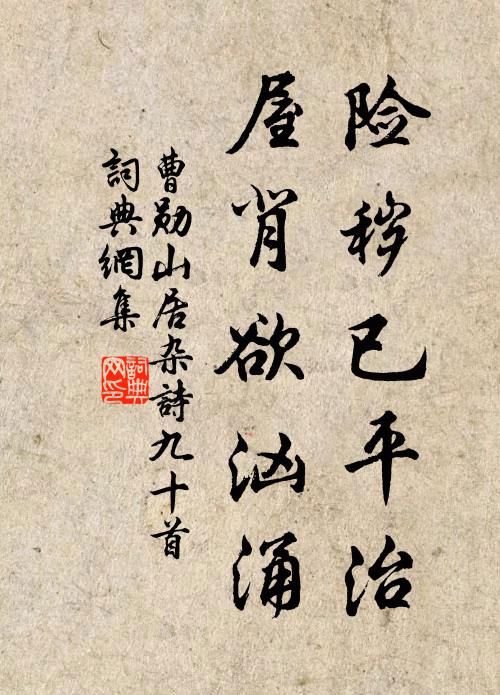 险秽已平治
屋背欲汹涌
曹勋山居杂詩九十首
詞典網集
詞典网印